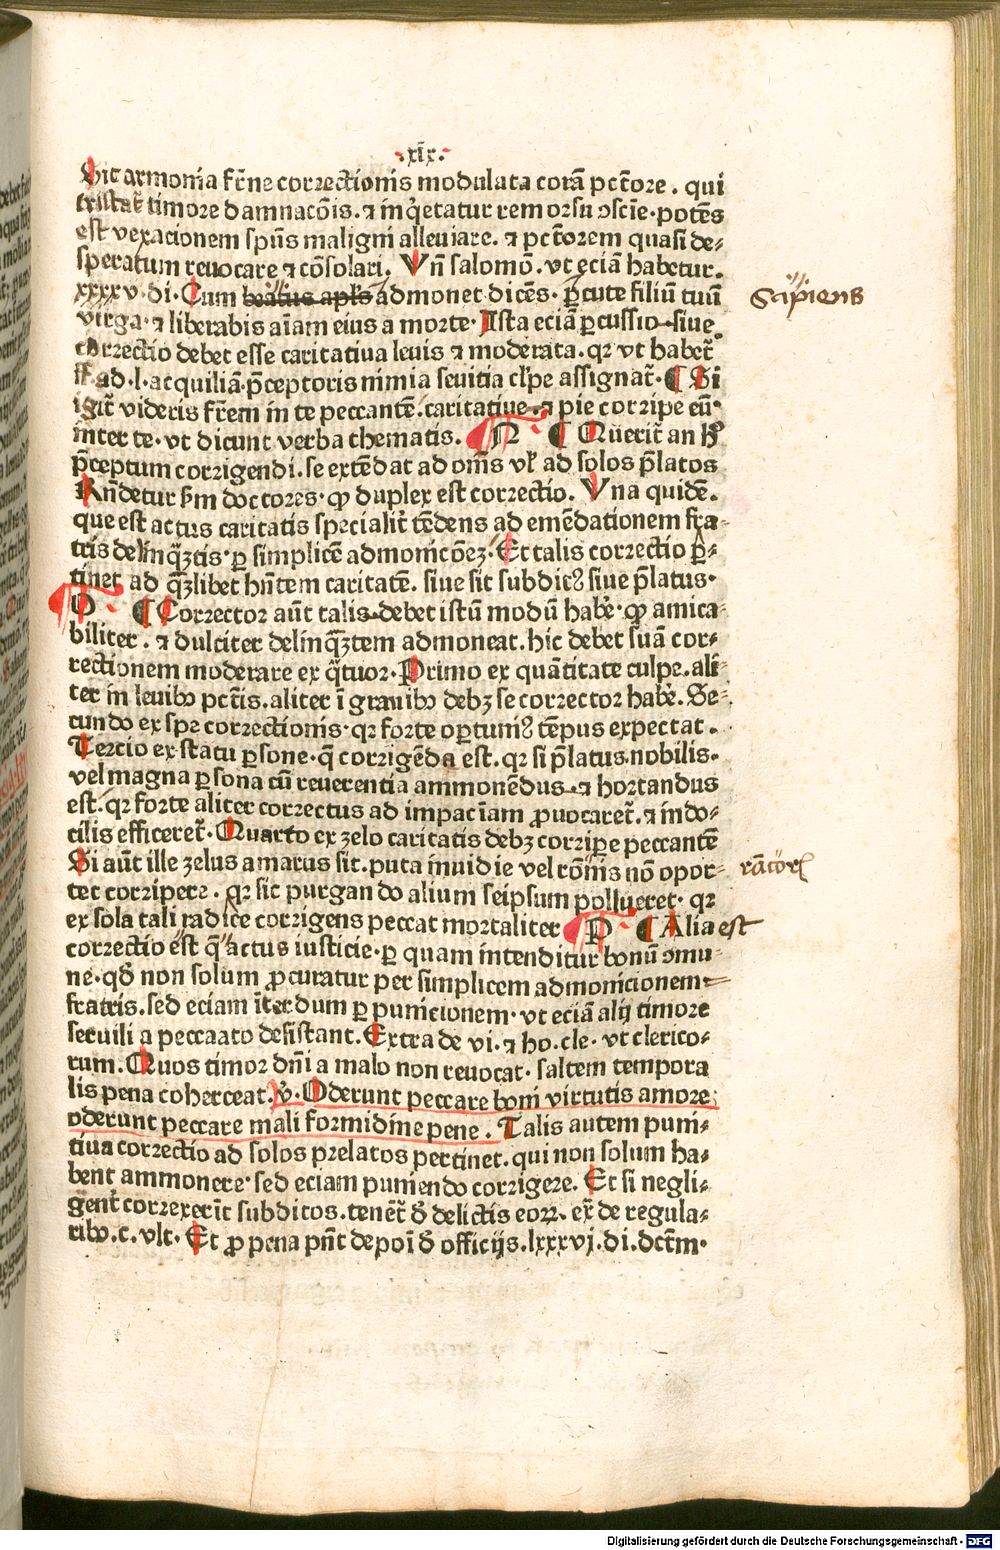 ·xix·
Sic armonia fr̄ne correctionis modulata corā pctōre . qui
tristat᷑ timore damnacōis. ⁊ inq̇etatur remorsu ɔscīe· potēs
est vexacionem spūs maligni alleuiare. ⁊ pctōrem quasi de⸗
speratum reuocare ⁊ cōsolari. Vn̄ salomō. vt eciā habetur.
xxxxv· di· Cum beatus apl̓s admonet dicēs· ꝑcute filiū tuū
Sapiens
virga· ⁊ liberabis aīam eius a morte· Ista eciā ꝑcussio siue
correctio debet esse caritatiua leuis ⁊ moderata. qꝛ vt habet᷑
ff ad ·l· acquiliā· p̄ceptoris nimia seuitia cl̓pe assignat᷑· ¶ Si
igit᷑ videris fr̄em in te peccantē. caritatiue ⁊ pie corripe eū·
inter te· vt dicunt verba thematis. N · ¶ Querit᷑ an h̄
p̄ceptum corrigendi· se extēdat ad om̄s vl̓ ad solos p̄latos
Rn̄detur s̄m doctores· ꝙ duplex est correctio. Vna quidē.
que est actus caritatis specialit᷑ tēdens ad emēdationem fra⸗
tris delinq̄ꝫtis· ꝑ simplicē admonicōeꝫ· Et talis correctio ꝑ⸗
tinet ad q̄ꝫlibet hn̄tem caritatē. siue sit subditꝰ siue p̄latus·
O · ¶ Corrector aūt talis debet istū modū habe᷑· ꝙ amica⸗
biliter . ⁊ dulciter delinq̄ꝫtem admoneat. hic debet suā cor⸗
rectionem moderare ex q̄tuor· Primo ex quātitate culpe. ali⸗
ter in leuibꝰ pctīs. aliter ī grauibꝰ debꝫ se corrector habe᷑. Se⸗
cundo ex spe correctionis· qꝛ forte oꝑtunꝰ tēpus expectat .
Tercio ex statu ꝑsone· q̄ corrigēda est. qꝛ si p̄latus. nobilis.
vel magna ꝑsona cū reuerentia ammonēdus ⁊ hortandus
est. qꝛ forte aliter correctus ad impaciam ꝓuocaret᷑. ⁊ indo⸗
cilis efficeret᷑· Quarto ex zelo caritatis debꝫ corripe peccantē
Si aūt ille zelus amarus sit. puta inuidie vel nō opor⸗
ter corripere . qꝛ sic purgando alium seipsum pollueret· qꝛ
ex sola tali radice corrigens peccat mortaliter P · ¶ Alia est
correctio est q̄ actus iusticie· ꝑ quam intenditur bonū ɔmu⸗
ne· qd̄ non solum ꝓcuratur per simplicem admonicionem
fratris. sed eciam īterdum ꝑ punicionem· vt eciā alij timore
seruili a peccaato desistant. Extra de vi· ⁊ ho. cle · vt clerico⸗
rum. Quos timor dn̄i a malo non reuocat· saltem tempora
lis pena coherceat. ꝟ· Oderunt peccare boni virtutis amore
oderunt peccare mali formidine pene . Talis autem puni⸗
tiua correctio ad solos prelatos pertinet. qui non solum ha⸗
bent ammonere· sed eciam puniendo corrigere. Et si negli⸗
gent᷑ correxerīt subditos. tenēt᷑ d̄ delictis eoꝝ. ex̄ de regula⸗
ribꝰ. c. vlt· Et ꝓ pena pn̄t depoī d̄ officijs. lxxxvj. di. dctm̄·
Digitalisierung gefördert durch die Deutsche Forschungsgemeinschaft - DFG